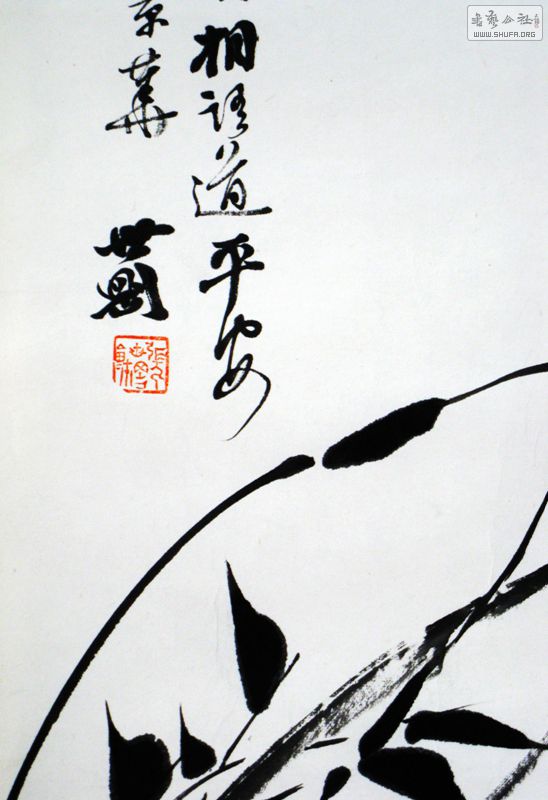 相語道平安
京華
世
書藝公社
WWW.SHUFA.ORG